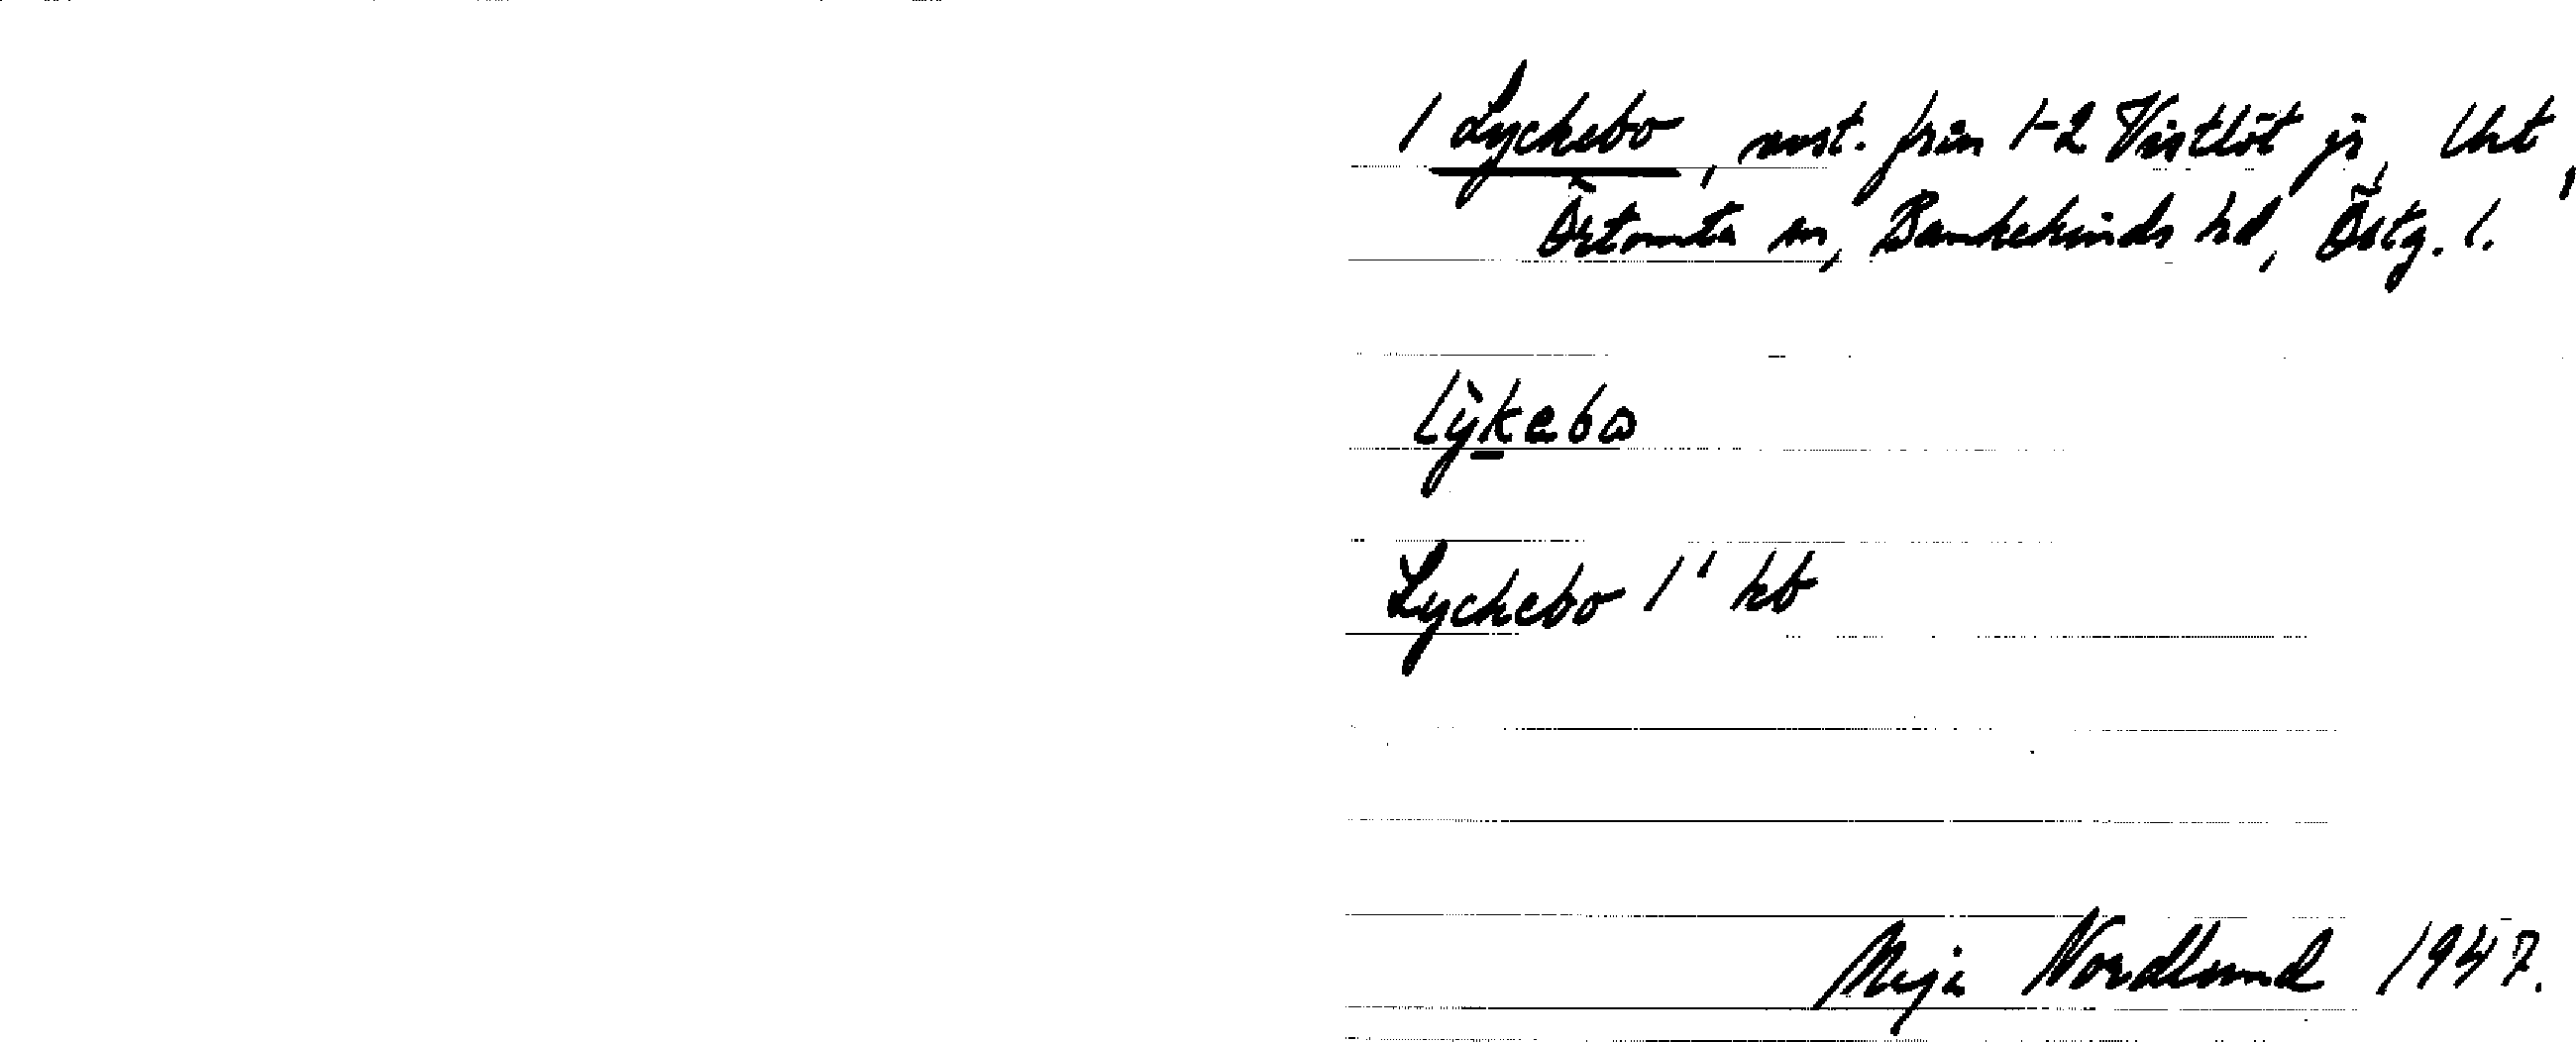 1 Lyckebo, avst. från 1-2 Vistlöt js, Uht,
Örtomta sn, Bankekinds hd, Östg. l.
Lỳkebω
Lyckebo 1' kb
Maja Nordlund 1947.